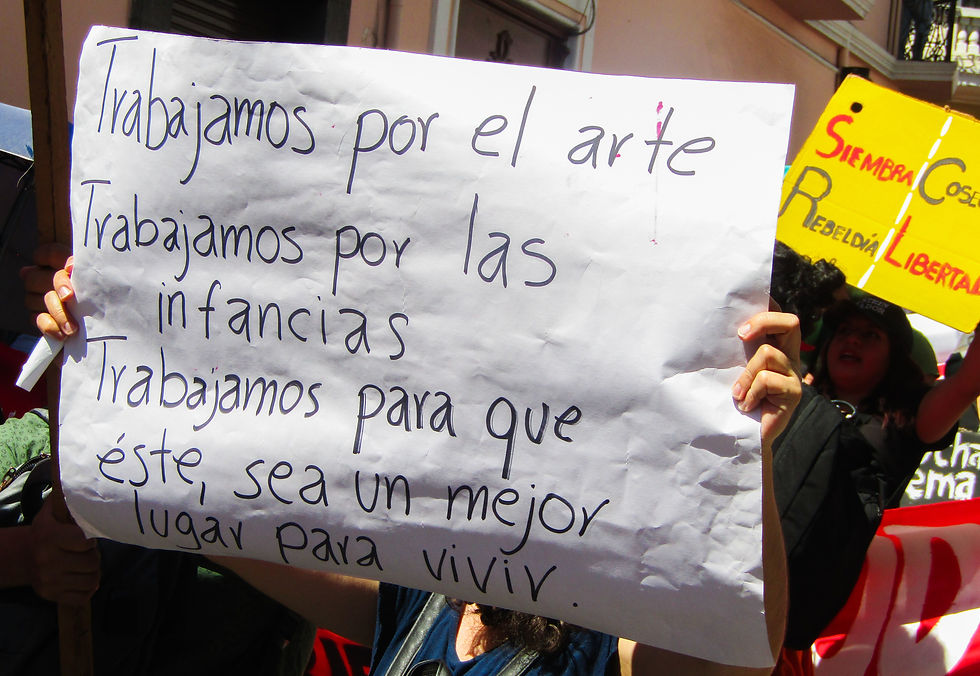 Trabajamos por el arte
Trabajamos por las
infancias
Trabajamos para que
éste, sea un mejor
lugar para vivir.
SIEMBRA
REBELDÍA
LIBERTAD